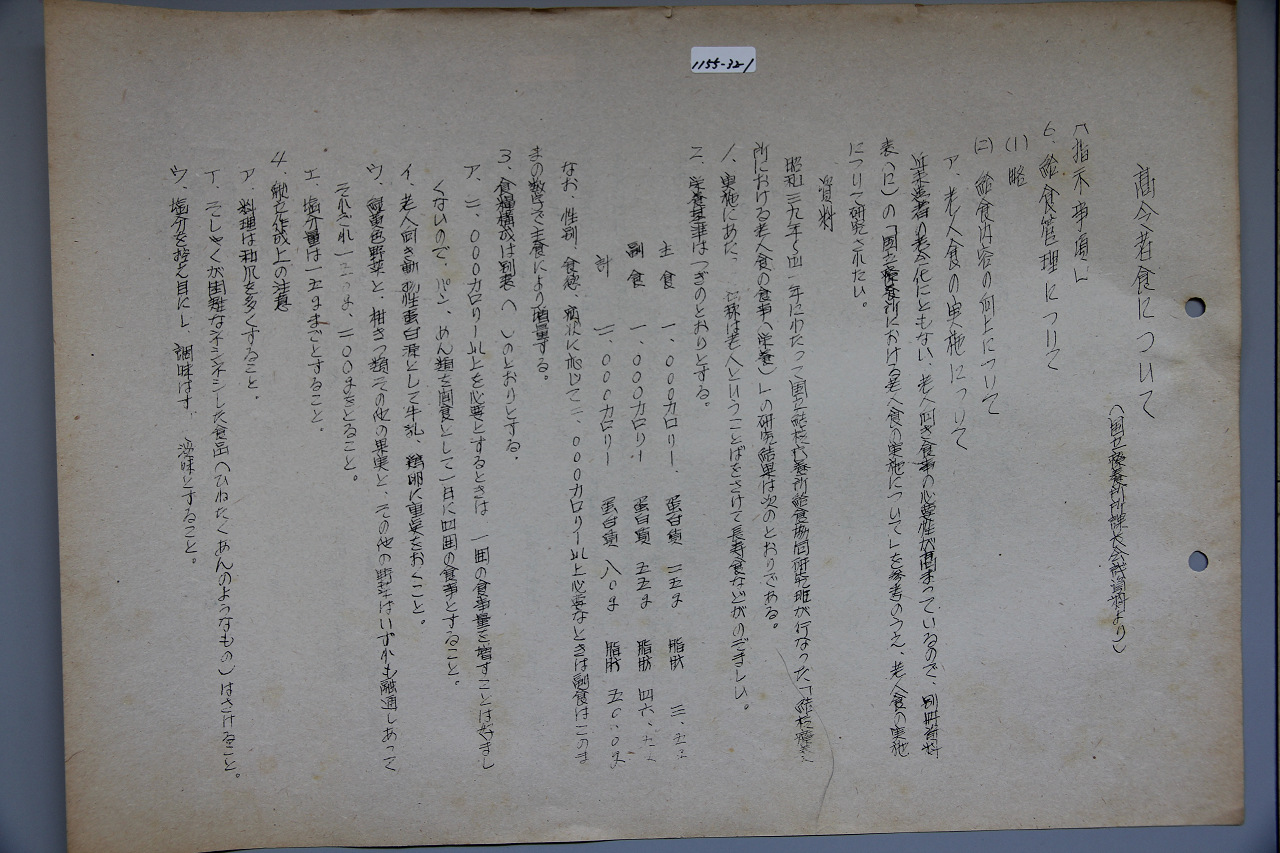 1155-321
高令者食について
(国立療養所課長会議資料より)
(指示事項)
6. 給食管理について
(1) 略
(二) 給食内容の向上について
ア、老人食の実施について
近来患者の老令化にともない、老人向き食事の必要性が高まっているので、別冊資料
表(12)の「国立療養所における老人食の実施について」を参考のうえ、老人食の実施
について研究されたい。
資料
昭和三九年〜四一年にわたって国立結核療養所給食協同研究班が行なった「結核療養
所における老人食の食事(栄養)」の研究結果は次のとおりである。
1、実施にあたり、名称は老人ということばをさけて長寿食などがのぞましい。
二、栄養基準はつぎのとおりとする。
主食 一、〇〇〇カロリー、 蛋白質 二五g 脂肪 三、五g
副食 一、〇〇〇カロリー 蛋白質 五五g 脂肪 四六、五g
計 二、〇〇〇カロリー 蛋白質 八〇g 脂肪 五〇、〇g
なお、性別、食慾、病状に応じて二、〇〇〇カロリー以上必要なときは副食はこのま
まの数字で主食により増量する。
3、食糧構成は別表( )のとおりとする。
ア、二、〇〇〇カロリー以上を必要とするときは、一回の食事量を増すことは好まし
くないので、パン、めん類を間食として一日に四回の食事とすること。
イ、老人向き動物性蛋白源として牛乳、鶏卵に重点をおくこと。
ウ、緑黄色野菜と、柑きつ類その他の果実と、その他の野菜はいずれも融通しあって
それぞれ 二〇〇gをとること。
エ、塩分量は一五gまでとすること。
4、献立作成上の注意
ア、料理は和風を多くすること。
イ、そしゃくが困難なネシネシした食品(ひねたくあんのようなもの)はさけること。
ウ、塩分を控え目にし、調味はすべて淡味とすること。